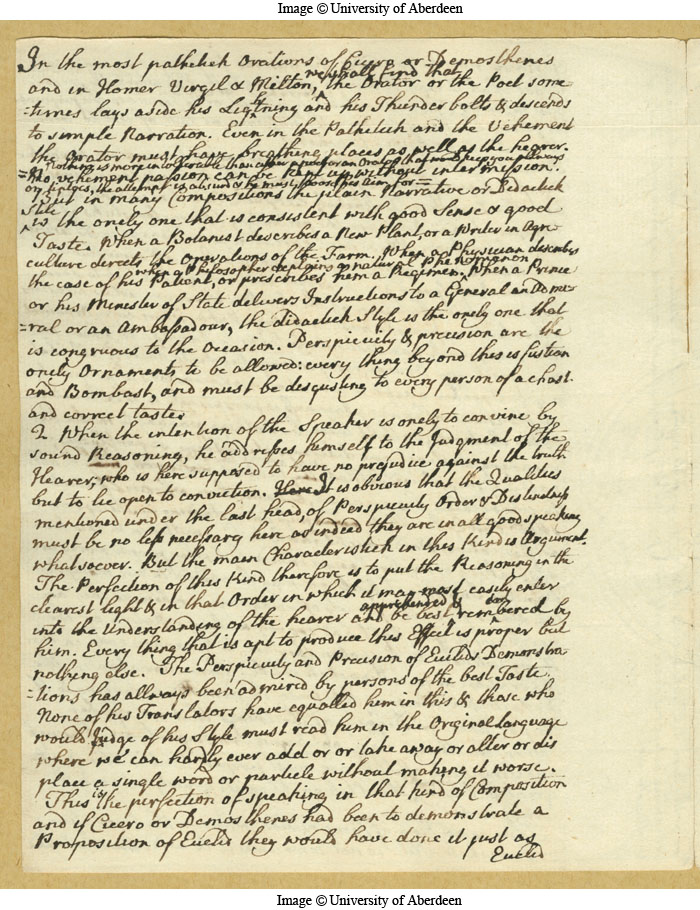 Image © University of Aberdeen
In the most pathetick Orations of Cicero or Demosthenes
and in Homer Virgil & Milton, we shall find that the Orator or the Poet some
=times lays aside his Lightning and his Thunder bolts & descends
to simple Narration. Even in the Pathetick and the Vehement
the Orator must have breathing places as well as the hearer.
Nothing is more intolerable than an Orator that keep you always
=No vehement passion can be kept up without intermission.
on tiptoes, the attempt is absurd & he must
But in many Compositions the plain Narrative or Didactick
Style is the onely one that is consistent with good Sense & good
Taste. When a Botanist describes a New Plant, or a Writer in Agri
culture directs the Operations of the Farm. When a Physician describes
when a Philosopher explains a natural Phenomenon
the case of his Patient, or prescribes him a Regimen. When a Prince
or his Minister of State delivers Instructions to a General an Admi-
=ral or an Ambassadour, the didactick Style is the onely one that
is congruous to the Occasion. Perspicuity & precision are the
onely Ornaments to be allowed: every thing beyond this is fustian
and Bombast, and must be disgusting to every person of a chast
and correct taste.
2 When the intention of the Speaker is onely to convince by
sound Reasoning, he addresses himself to the Judgment of the
Hearer, who is here supposed to have no prejudice against the truth
but to lie open to conviction. Here It is obvious that the Qualities
mentioned under the last head, of Perspicuity Order & Distinctness
must be no less necessary here as indeed they are in all good speaking
whatsoever. But the main Characteristick in this Kind is Argument.
The Perfection of this Kind therefore is to put the Reasoning in the
clearest light & in that Order in which it may most easily enter
into the Understanding of the hearer and be best apprehended & remembered by
him. Every thing that is apt to produce this Effect is proper but
nothing else. The Perspicuity and Precision of Euclids Demonstra
=tions has allways been admired by persons of the best Taste.
None of his Translators have equalled him in this & those who
would Judge of his Style must read him in the Original language
where we can hardly ever add or or take away or alter or dis
place a single word or particle without making it worse.
This is the perfection of speaking in that kind of Composition
and if Cicero or Demosthenes had been to demonstrate a
Proposition of Euclid they would have done it just as
Euclid
Image © University of Aberdeen